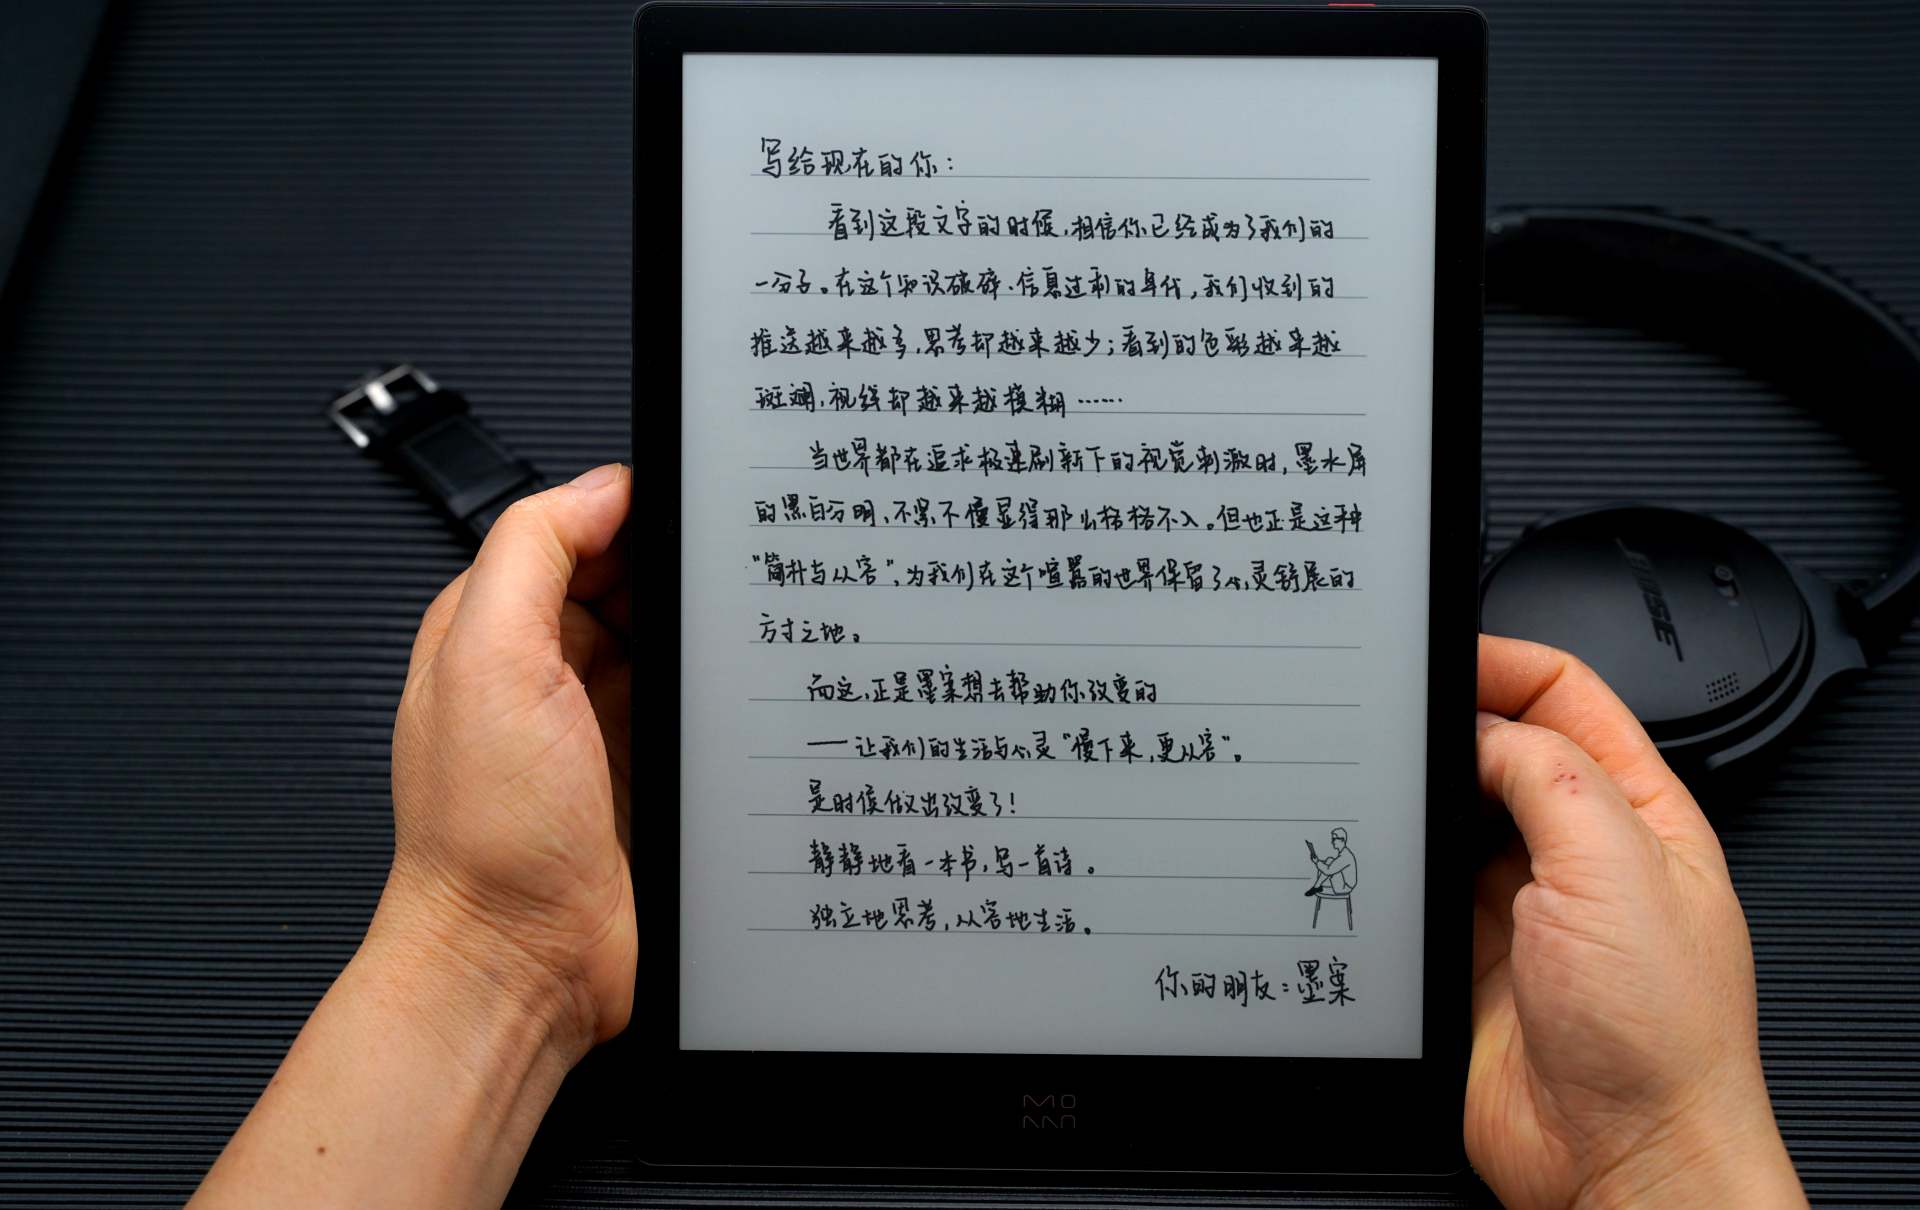 写给现在的你：
看到这段文字的时候，相信你已经成为了我们的
一分子。在这个知识破碎、信息过剩的年代，我们收到的
推送越来越多，思考却越来越少；看到的色彩越来越
斑斓，视线却越来越模糊……
当世界都在追求极速刷新下的视觉刺激时，墨水屏
的黑白分明、不紧不慢显得那么格格不入。但也正是这种
“简朴与从容”，为我们在这个喧嚣的世界保留了心灵舒展的
方寸之地。
而这，正是墨案想去帮助你改变的
——让我们的生活与心灵“慢下来，更从容”。
是时候做出改变了！
静静地看一本书，写一首诗。
独立地思考，从容地生活。
你的朋友：墨案
MOAN
BOSE